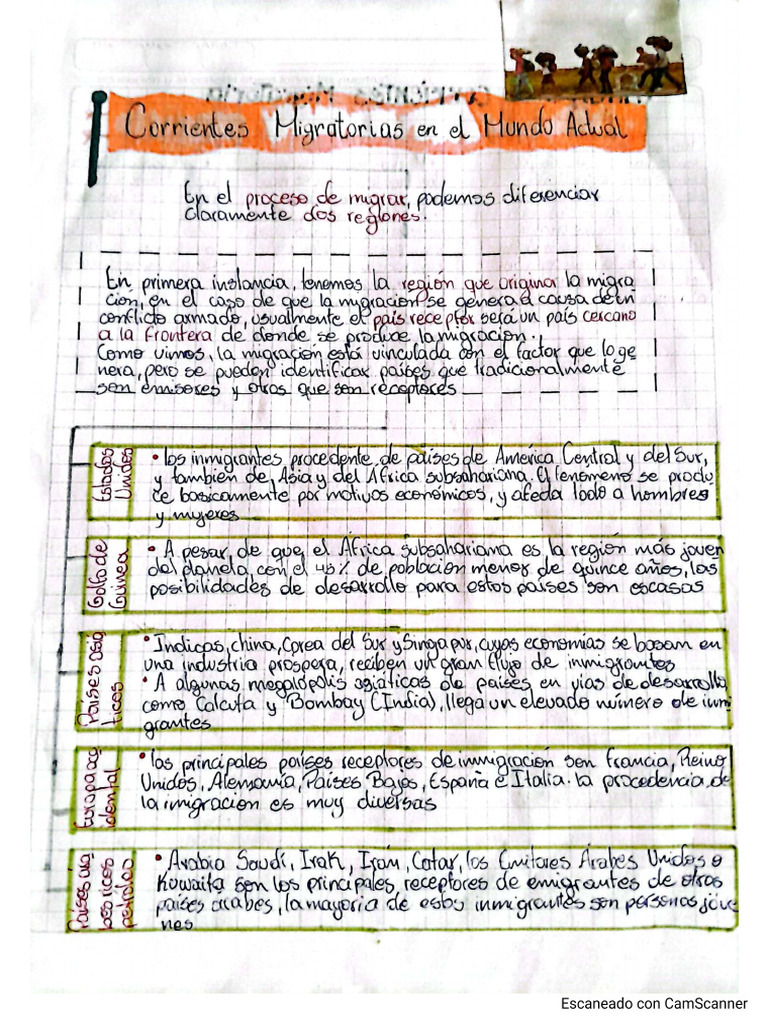 Corrientes Migratorias en el Mundo Actual
En el proceso de migrar, podemos diferenciar
claramente dos regiones.
En primera instancia, tenemos la región que origina la migra
cion, en el caso de que la migracion se genera a causa de un
conflicto armado, usualmente el país receptor será un país cercano
a la frontera de donde se produce la migración.
Como vimos, la migración está vinculada con el factor que lo ge
nera, pero se pueden identificar países que tradicionalmente
son emisores y otros que son receptores
Estados
Unidos
• los inmigrantes procedente de países de América Central y del Sur,
y tambien de Asia y del África subsahariana. El fenomeno se produ
ce basicamente por motivos económicos, y afecta todo a hombres
y mujeres
Golfo de
Guinea
• A pesar, de que el África subsahariana es la región más joven
del planeta, con el 45% de población menor de quince años, las
posibilidades de desarrollo para estos países son escasas
Países asia
ticos
• Indicas, china, Corea del Sur y Singapur, cuyas economías se basan en
una industria prospera, reciben un gran flujo de inmigrantes
• A algunas megalópolis asiáticas de países en vías de desarrollo
como Calcuta y Bombay (India), llega un elevado número de inmi
grantes
Europa occ
idental
• las principales países receptores de inmigración son Francia, Reino
Unidos, Alemania, Países Bajos, España e Italia. la procedencia de
la imigracion es muy diversas
Países ára
bes ricos
petroleo
• Arabia Saudí, Irak, Irán, Catar, los Emitares Árabes Unidos o
Kuwaita son los principales, receptores de emigrantes de otros
países árabes, la mayoria de estos inmigrantes son personas jóve
nes
Escaneado con CamScanner